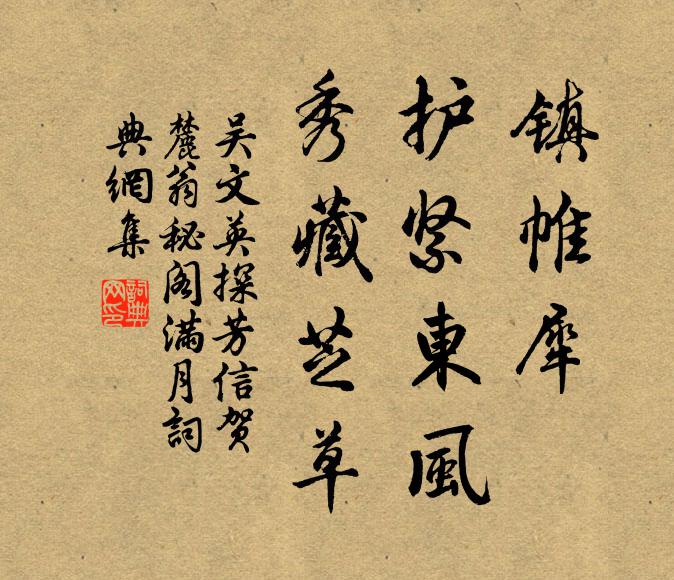 镇帷犀
护紧東風
秀藏芝草
吴文英探芳信贺
麓翁秘阁满月詞
典網集
詞典網印